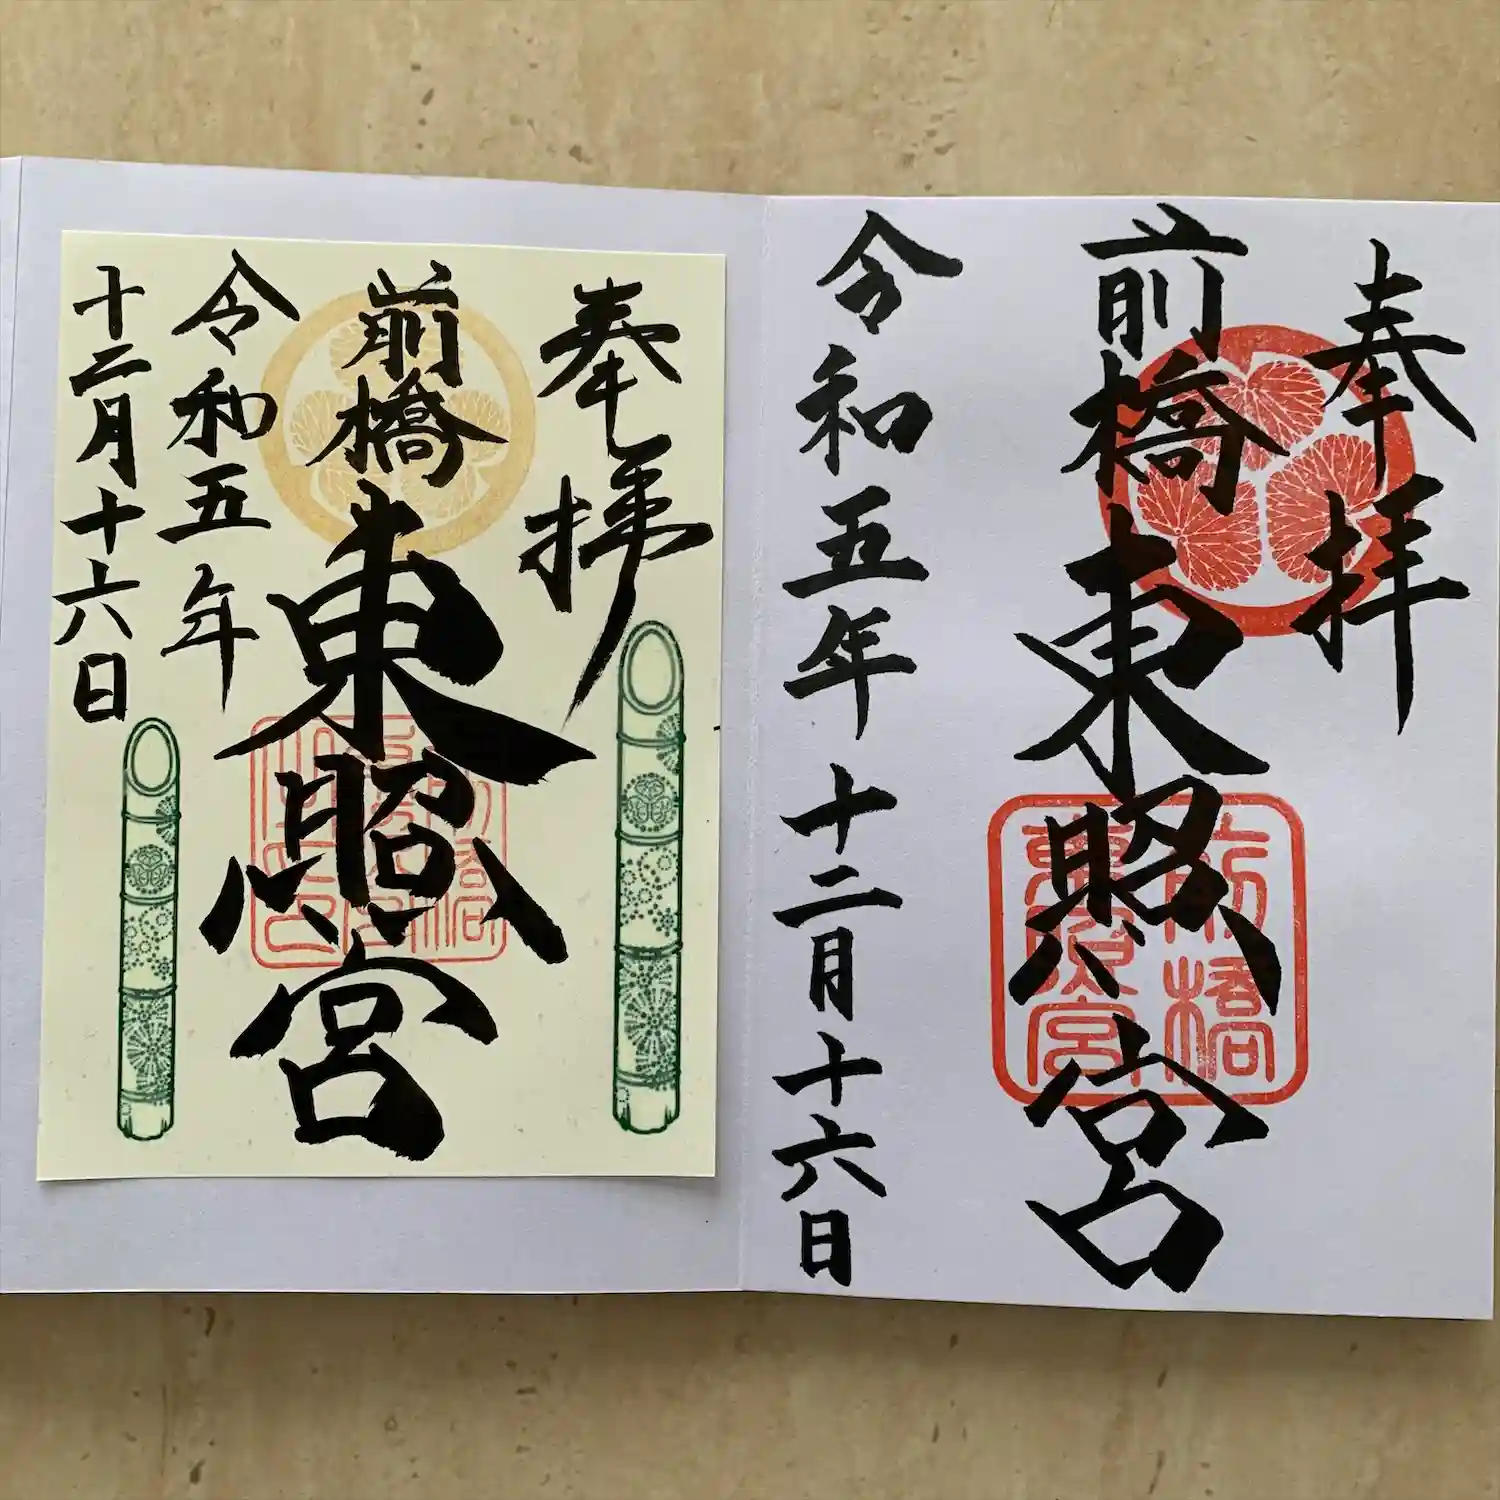 奉拝
前橋
東照宮
令和五年十二月十六日
前橋
東照宮
奉拝
前橋
東照宮
令和五年
十二月十六日